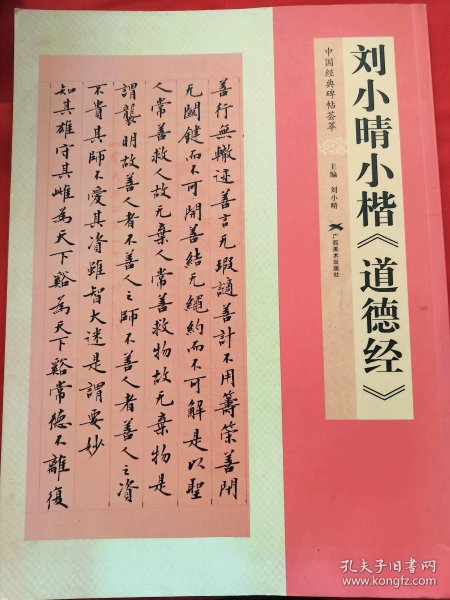 中国经典碑帖荟萃
刘小晴小楷《道德经》
主编 刘小晴
广西美术出版社
善行無轍迹善言无瑕謫善計不用籌策善閉
无關鍵而不可開善結无繩約而不可解是以聖
人常善救人故无棄人常善救物故无棄物是
謂襲明故善人者不善人之師不善人者善人之資
不貴其師不愛其資雖智大迷是謂要妙
知其雄守其雌為天下谿為天下谿常德不離復
孔夫子旧书网
www.kongfz.com